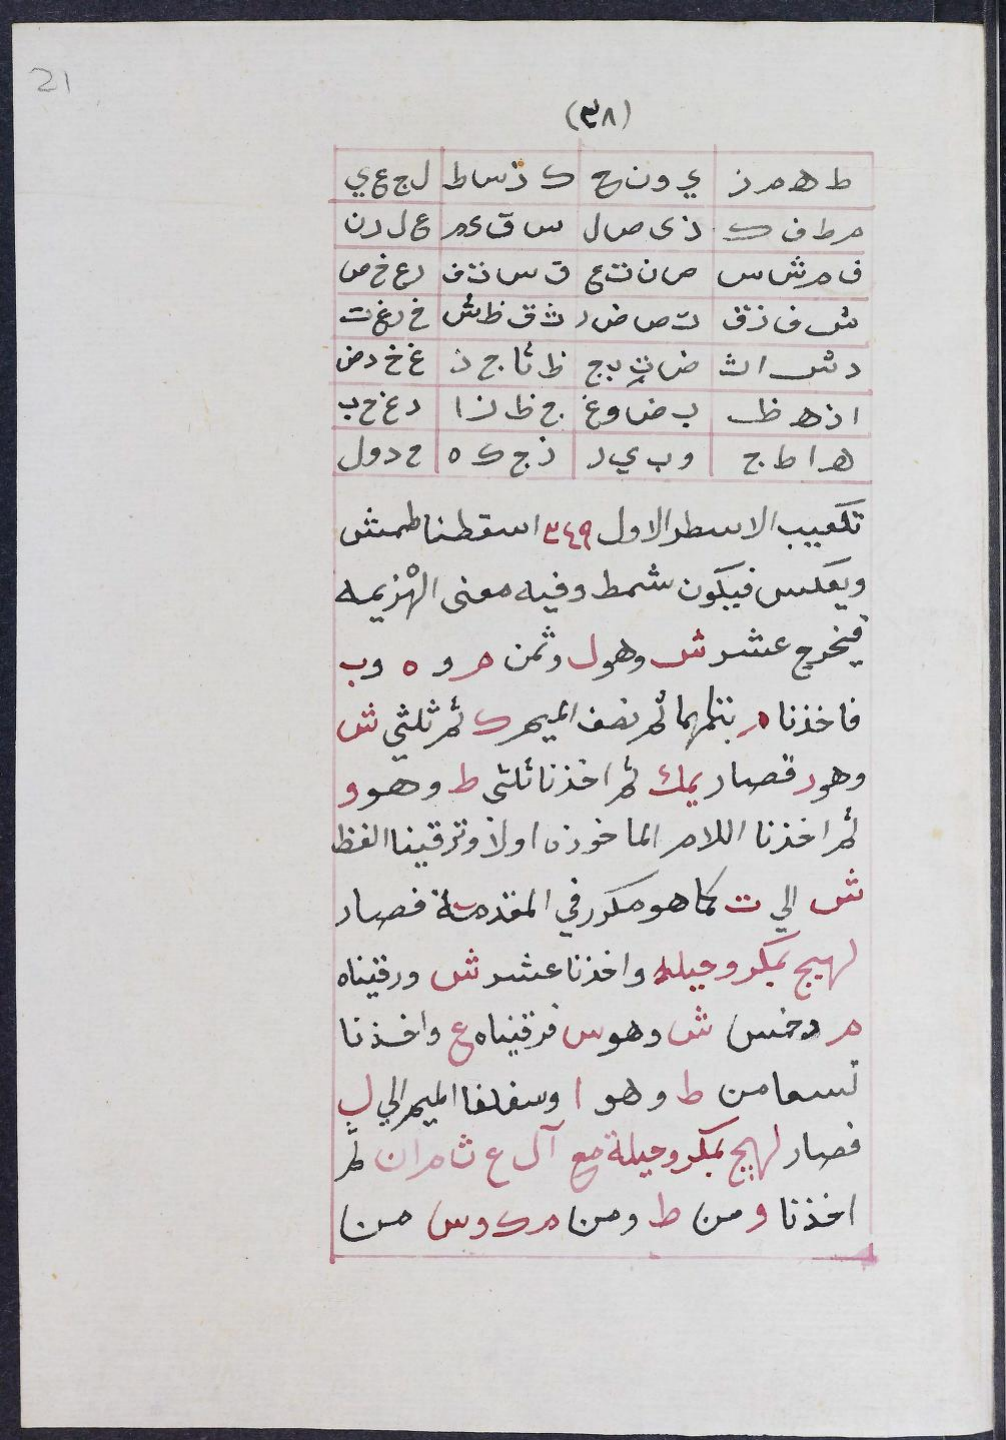 21
(٣٨)
ط ه م ز ي و ن ح ك ز س ط ل ج ع ي
م ط ف ك ز ى ص ل س ق ى م ع ل د ن
ف م ش س ص ن ت ع ق س ث ف د ع خ ص
ش ف ذ ق ت ص ض د ث ق ظ ش خ د غ ت
د ش ا ث ض ت ب ج ظ ث ا ج ذ غ خ د ض
ا ذ ه ظ ب ض و غ ج ظ ز ا د غ ح ب
ه ا ط ج و ب ي د ز ج ك ه ح د و ل
تكعيب الاسطر الاول ٣٤٩ اسقطنا طمش
ويعكس فيكون شمط وفيه معنى الهزيمه
فيخرج عشر ش وهو ل وثمن م و ه وب
فاخذنا م بتمامها ثم نصف الميم ك ثم ثلثي ش
وهو ر فصار يمك ثم اخذنا ثلثي ط وهو و
ثم اخذنا اللام الماخوذه اولا وترقينا الفظ
ش الي ت كما هو مكرر في المقدمة فصار
لهيج بمكر وحيله واخذنا عشر ش ورقيناه
م وخمس ش وهو س فرقيناه ع واخذنا
تسعا من ط وهو ا وسفلنا الميم الي ل
فصار لهيج بمكر وحيلة مع آل ع ث م ر ا ن ثم
اخذنا و من ط ومن م ك و س من